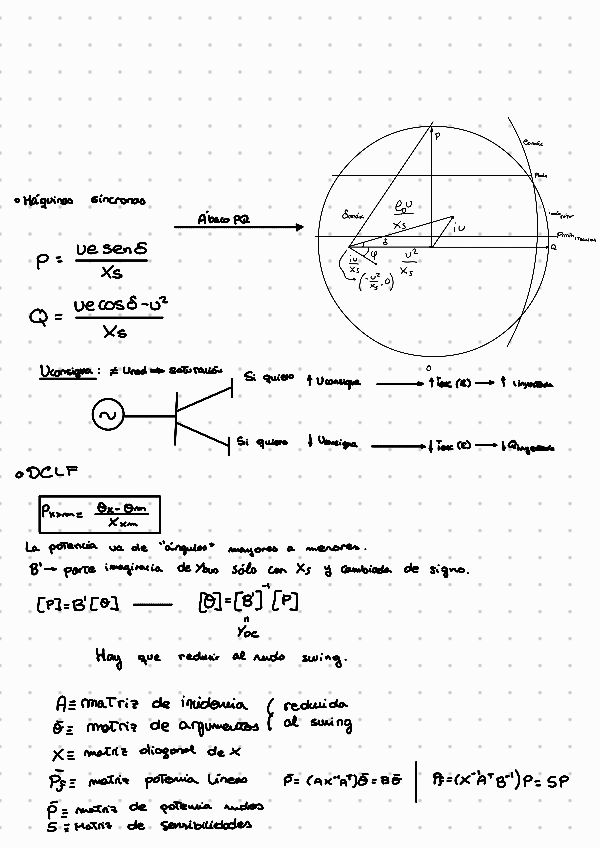 • Máquinas síncronas
Ábaco PQ
P = ue senδ / Xs
Q = ue cosδ - u² / Xs
P
δmáx
e₀u / Xs
δ
iu
φ
u² / Xs
iu / Xs
(-u²/Xs, 0)
Q
Uconsigna: ≠ Ured ⟹ saturación
Si quiero ↑ Uconsigna → ↑ Iexc (E) → ↑
Si quiero ↓ Uconsigna → ↓ Iexc (E) → ↓ Qinyectada
• DCLF
Pk→m = θk - θm / Xkm
La potencia va de "ángulos" mayores a menores.
B' → parte imaginaria de Ybus sólo con Xs y cambiada de signo.
[P] = B' [θ] — [θ] = [B']⁻¹ [P]
YDC
Hay que reducir al nudo swing.
A ≡ matriz de incidencia ( reducida
θ̄ ≡ matriz de argumentos ( al swing
X ≡ matriz diagonal de x
P̄f ≡ matriz potencia líneas P̄ = (A X⁻¹ Aᵀ) θ̄ = B θ̄ | P̄f = (X⁻¹ Aᵀ B⁻¹) P = SP
P̄ ≡ matriz de potencia nudos
S ≡ Matriz de sensibilidades